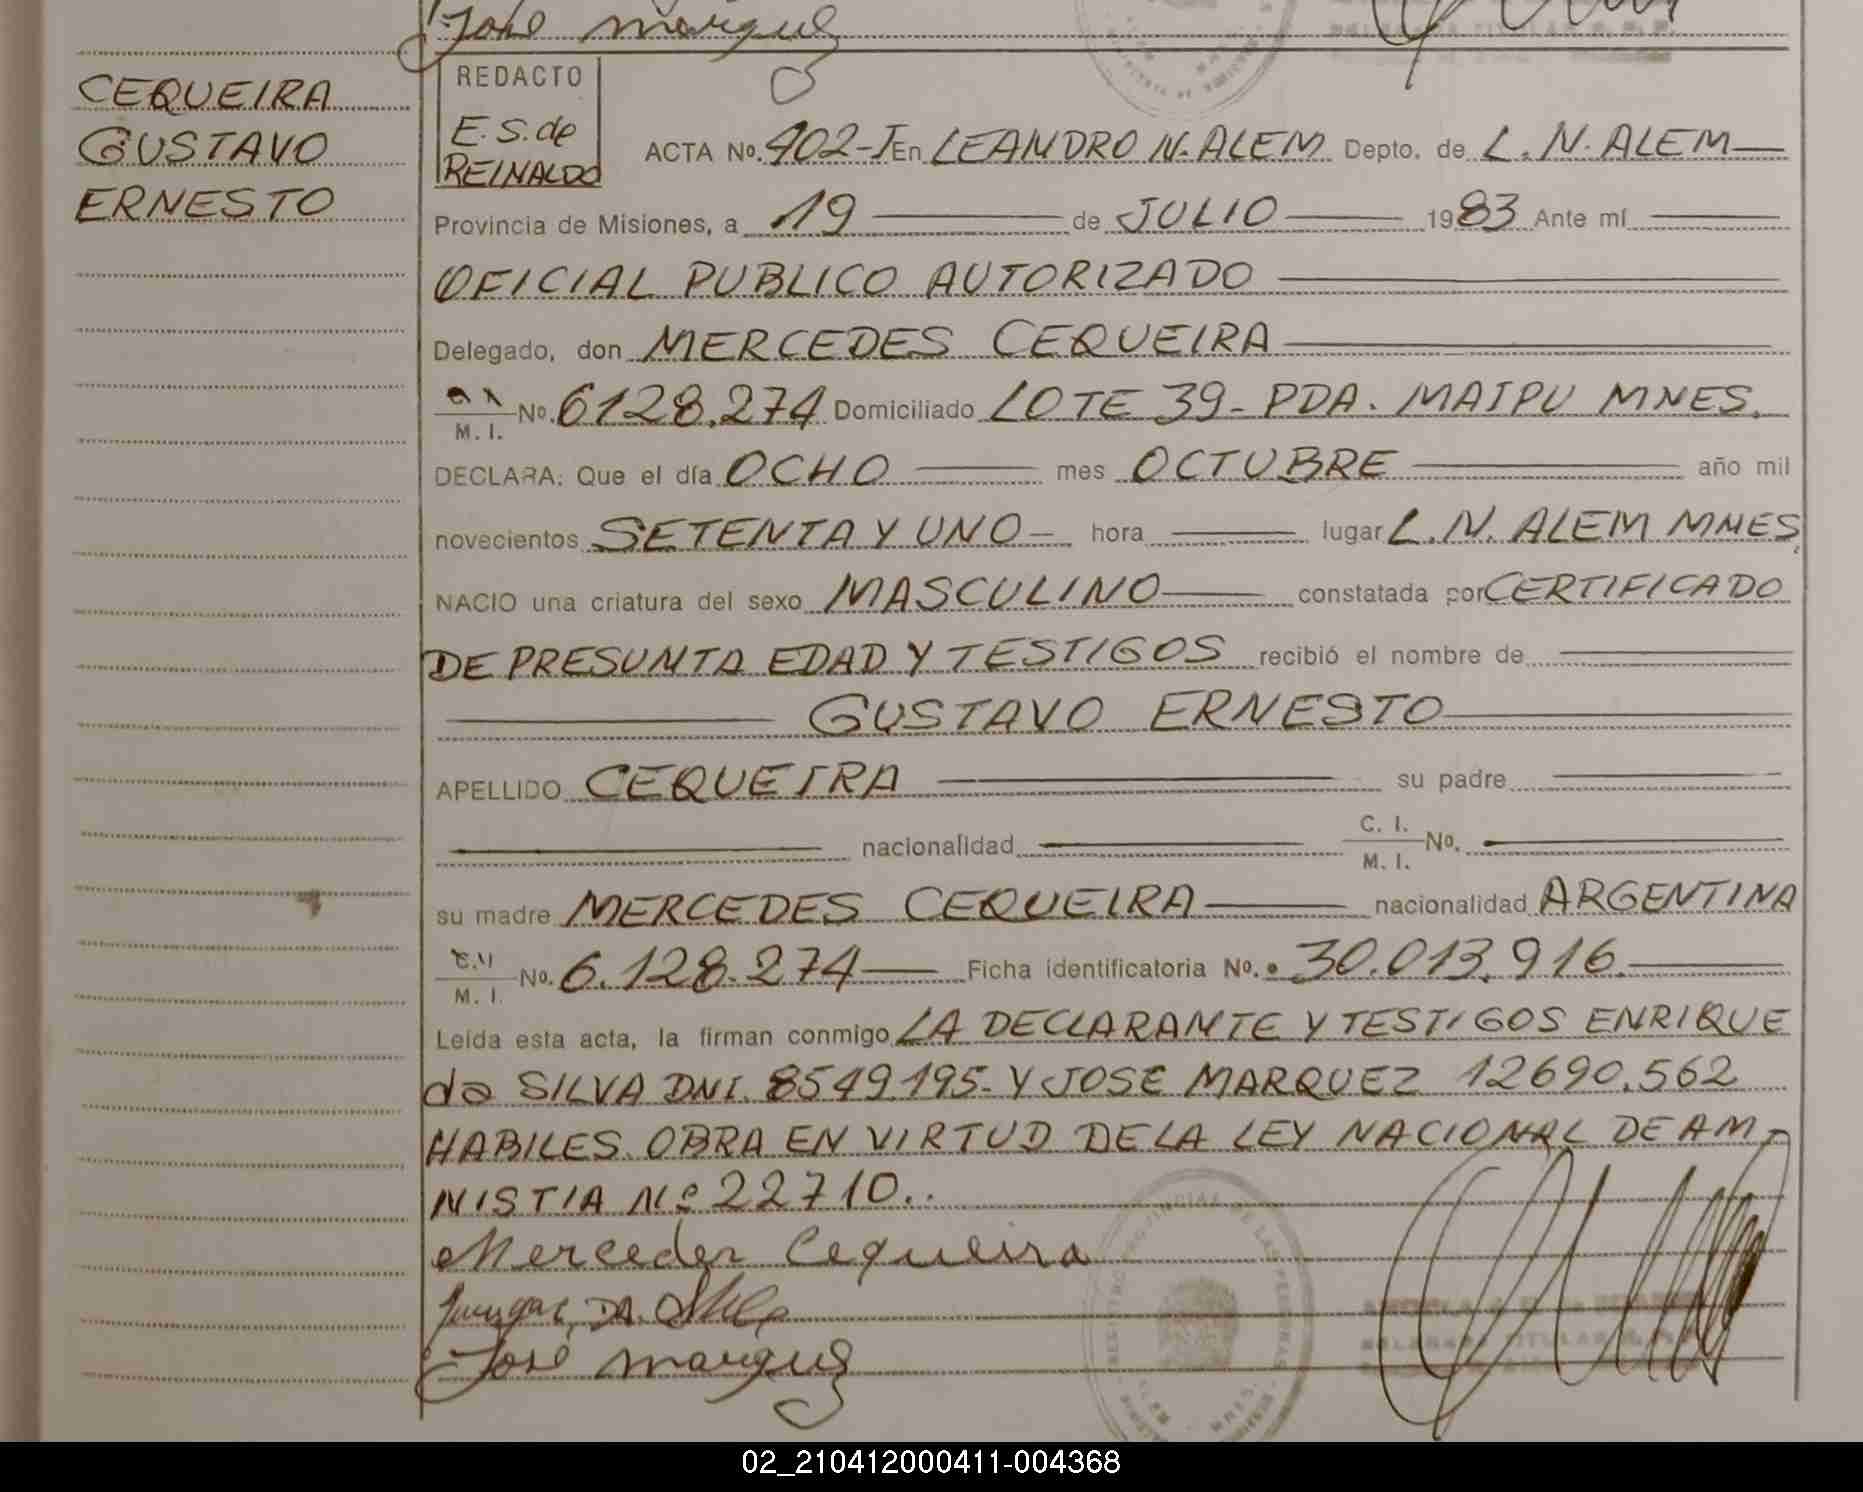 José Marquez
CEQUEIRA
GUSTAVO
ERNESTO
REDACTO
E.S. de
REINALDO
ACTA No. 402-I En LEANDRO N. ALEM Depto. de L. N. ALEM
Provincia de Misiones, a 19 de JULIO 1983 Ante mí
OFICIAL PUBLICO AUTORIZADO
Delegado, don MERCEDES CEQUEIRA
M. I. No. 6128.274 Domiciliado LOTE 39- PDA. MAIPU MNES.
DECLARA: Que el día OCHO mes OCTUBRE año mil
novecientos SETENTA Y UNO hora lugar L. N. ALEM MNES,
NACIO una criatura del sexo MASCULINO constatada por CERTIFICADO
DE PRESUNTA EDAD Y TESTIGOS recibió el nombre de
GUSTAVO ERNESTO
APELLIDO CEQUEIRA su padre
nacionalidad C. I. M. I. No.
su madre MERCEDES CEQUEIRA nacionalidad ARGENTINA
M. I. No. 6.128.274 Ficha identificatoria No. 30.013.916.
Leída esta acta, la firman conmigo LA DECLARANTE Y TESTIGOS ENRIQUE
da SILVA DNI. 8549.195- Y JOSE MARQUEZ 12690.562
HABILES. OBRA EN VIRTUD DE LA LEY NACIONAL DE AM-
NISTIA No 22710..
Mercedes Cequeira
DA Silva
José Marquez
REGISTRO PROVINCIAL DE LAS PERSONAS
02_210412000411-004368